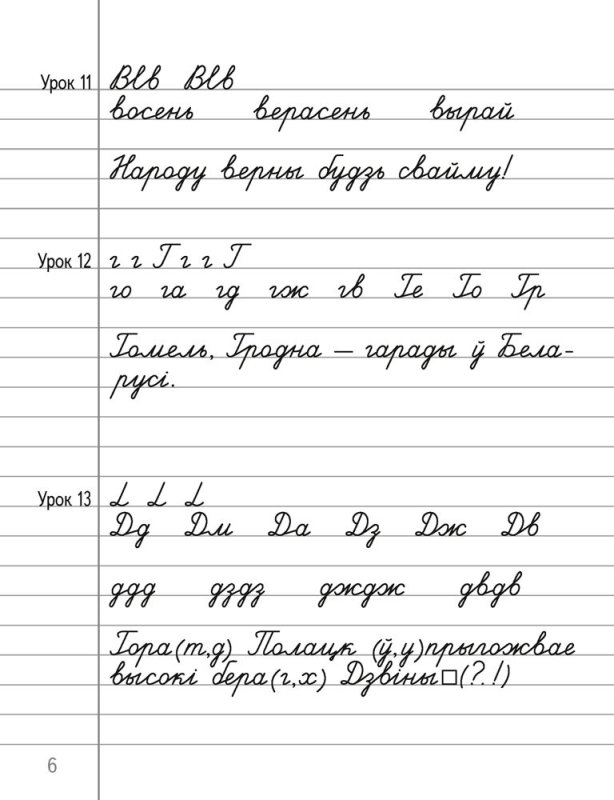 Урок 11 Ввв Ввв
восень верасень вырай
Народу верны будзь свайму!
Урок 12 г г Г г г Г
го га гд гж гв Ге Го Гр
Гомель, Гродна — гарады ў Бела-
русі.
Урок 13
Дд Дм Да Дз Дж Дв
ддд дздз джджж двдв
Гора(т,д) Полацк (ў,у)прыгожвае
высокі бера(г,х) Дзвіны□(?.!)
6